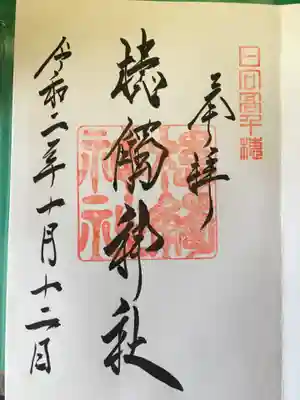 日向高千穂
奉拝
槵觸神社
槵觸神社
令和二年十月十二日